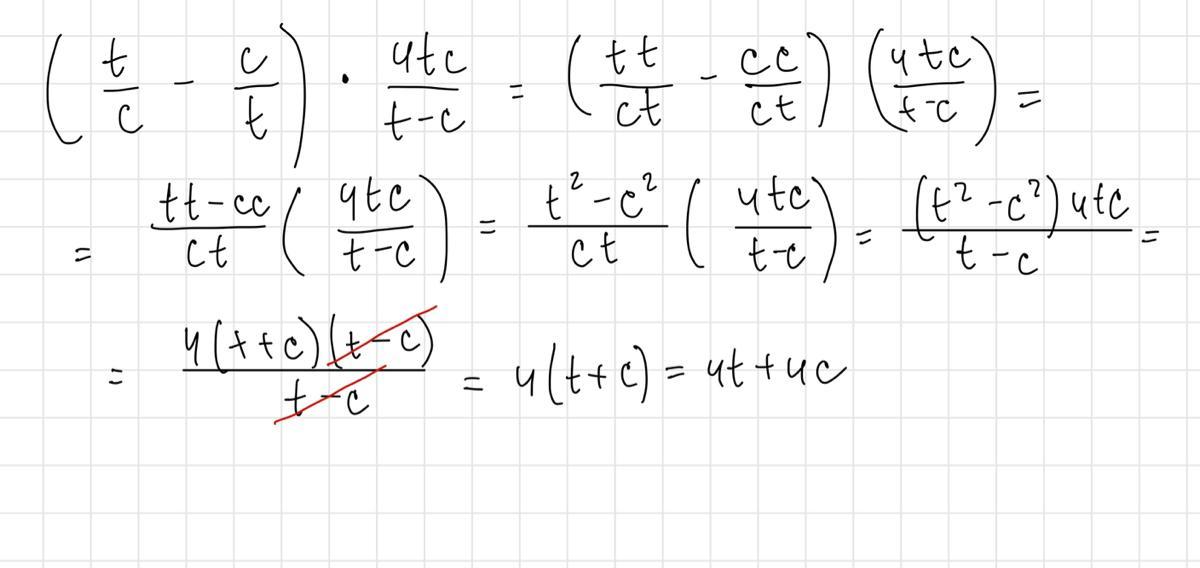 (t/c - c/t) · 4tc/t-c = (tt/ct - cc/ct) (4tc/t-c) =
= tt-cc/ct (4tc/t-c) = t²-c²/ct (4tc/t-c) = (t²-c²)4tc/t-c =
= 4(t+c)(t-c)/t-c = 4(t+c) = 4t+4c